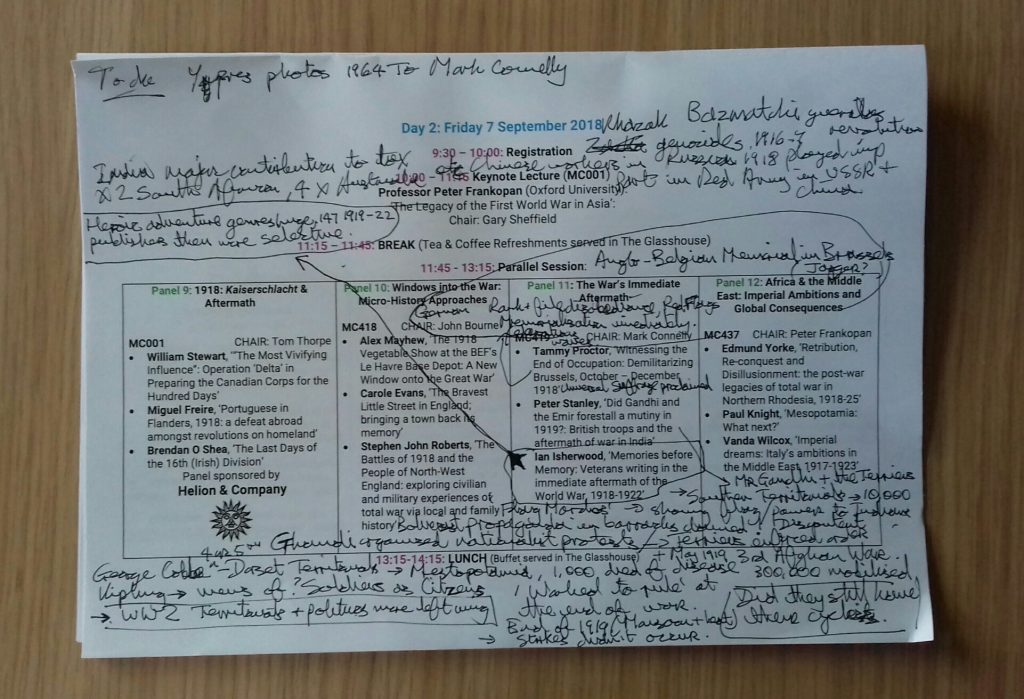 To do Ypres photos 1964 To Mark Connelly
Khazak Bazmatchie guerrillas
Day 2: Friday 7 September 2018
genocides, 1916-7 revolution
9:30 – 10:00: Registration
India major contribution to
Chinese workers in Russia 1918 played imp
10:00 – 11:15 Keynote Lecture (MC001)
X2 South African, 4 X Australia
part in Red Army in USSR +
China
Professor Peter Frankopan (Oxford University),
'The Legacy of the First World War in Asia':
Chair: Gary Sheffield
Heroic adventure genre huge, 147 1919-22
publishers then more selective.
11:15 – 11:45: BREAK (Tea & Coffee Refreshments served in The Glasshouse)
11:45 - 13:15: Parallel Session:
Anglo-Belgian Memorial in Brussels
Panel 9: 1918: Kaiserschlacht &
Aftermath
MC001 CHAIR: Tom Thorpe
• William Stewart, '"The Most Vivifying
Influence": Operation 'Delta' in
Preparing the Canadian Corps for the
Hundred Days'
• Miguel Freire, 'Portuguese in
Flanders, 1918: a defeat abroad
amongst revolutions on homeland'
• Brendan O Shea, 'The Last Days of
the 16th (Irish) Division'
Panel sponsored by
Helion & Company
Panel 10: Windows into the War:
Micro-History Approaches
MC418 CHAIR: John Bourne
• Alex Mayhew, 'The 1918
Vegetable Show at the BEF's
Le Havre Base Depot: A New
Window onto the Great War'
• Carole Evans, 'The Bravest
Little Street in England;
bringing a town back its
memory'
• Stephen John Roberts, 'The
Battles of 1918 and the
People of North-West
England: exploring civilian
and military experiences of
total war via local and family
history'
Panel 11: The War's Immediate
Aftermath
German Rank + file disobedience, Red Flags
Memorialisation immediately.
MC419 CHAIR: Mark Connelly
• Tammy Proctor, 'Witnessing the
End of Occupation: Demilitarizing
Brussels, October – December
1918'
Universal Suffrage proclaimed
• Peter Stanley, 'Did Gandhi and
the Emir forestall a mutiny in
1919?: British troops and the
aftermath of war in India'
• Ian Isherwood, 'Memories before
Memory: Veterans writing in the
immediate aftermath of the
World War, 1918-1922'
Panel 12: Africa & the Middle
East: Imperial Ambitions and
Global Consequences
MC437 CHAIR: Peter Frankopan
• Edmund Yorke, 'Retribution,
Re-conquest and
Disillusionment: the post-war
legacies of total war in
Northern Rhodesia, 1918-25'
• Paul Knight, 'Mesopotamia:
What next?'
• Vanda Wilcox, 'Imperial
dreams: Italy's ambitions in
the Middle East, 1917-1923'
Mr Gandhi + the Terriers
→ Southern Territorials → 10,000
'Flag Marches' → showing flag / power to
Bolshevist Propaganda in barracks
Ghandi organised nationalist protests / → Terriers enforced order
13:15-14:15: LUNCH (Buffet served in The Glasshouse)
+ May 1919 3rd Afghan War.
George – Dorset Territorials → Mesopotamia, 1,000 died of disease 300,000 mobilised
Kipling → views of ? Soldiers as Citizens 'Worked to rule' at
the end of work.
→ WW2 Territorials + politics more left wing
Did they still have
their
End of 1919 (Monsoon + heat)
→ strikes didn't occur.